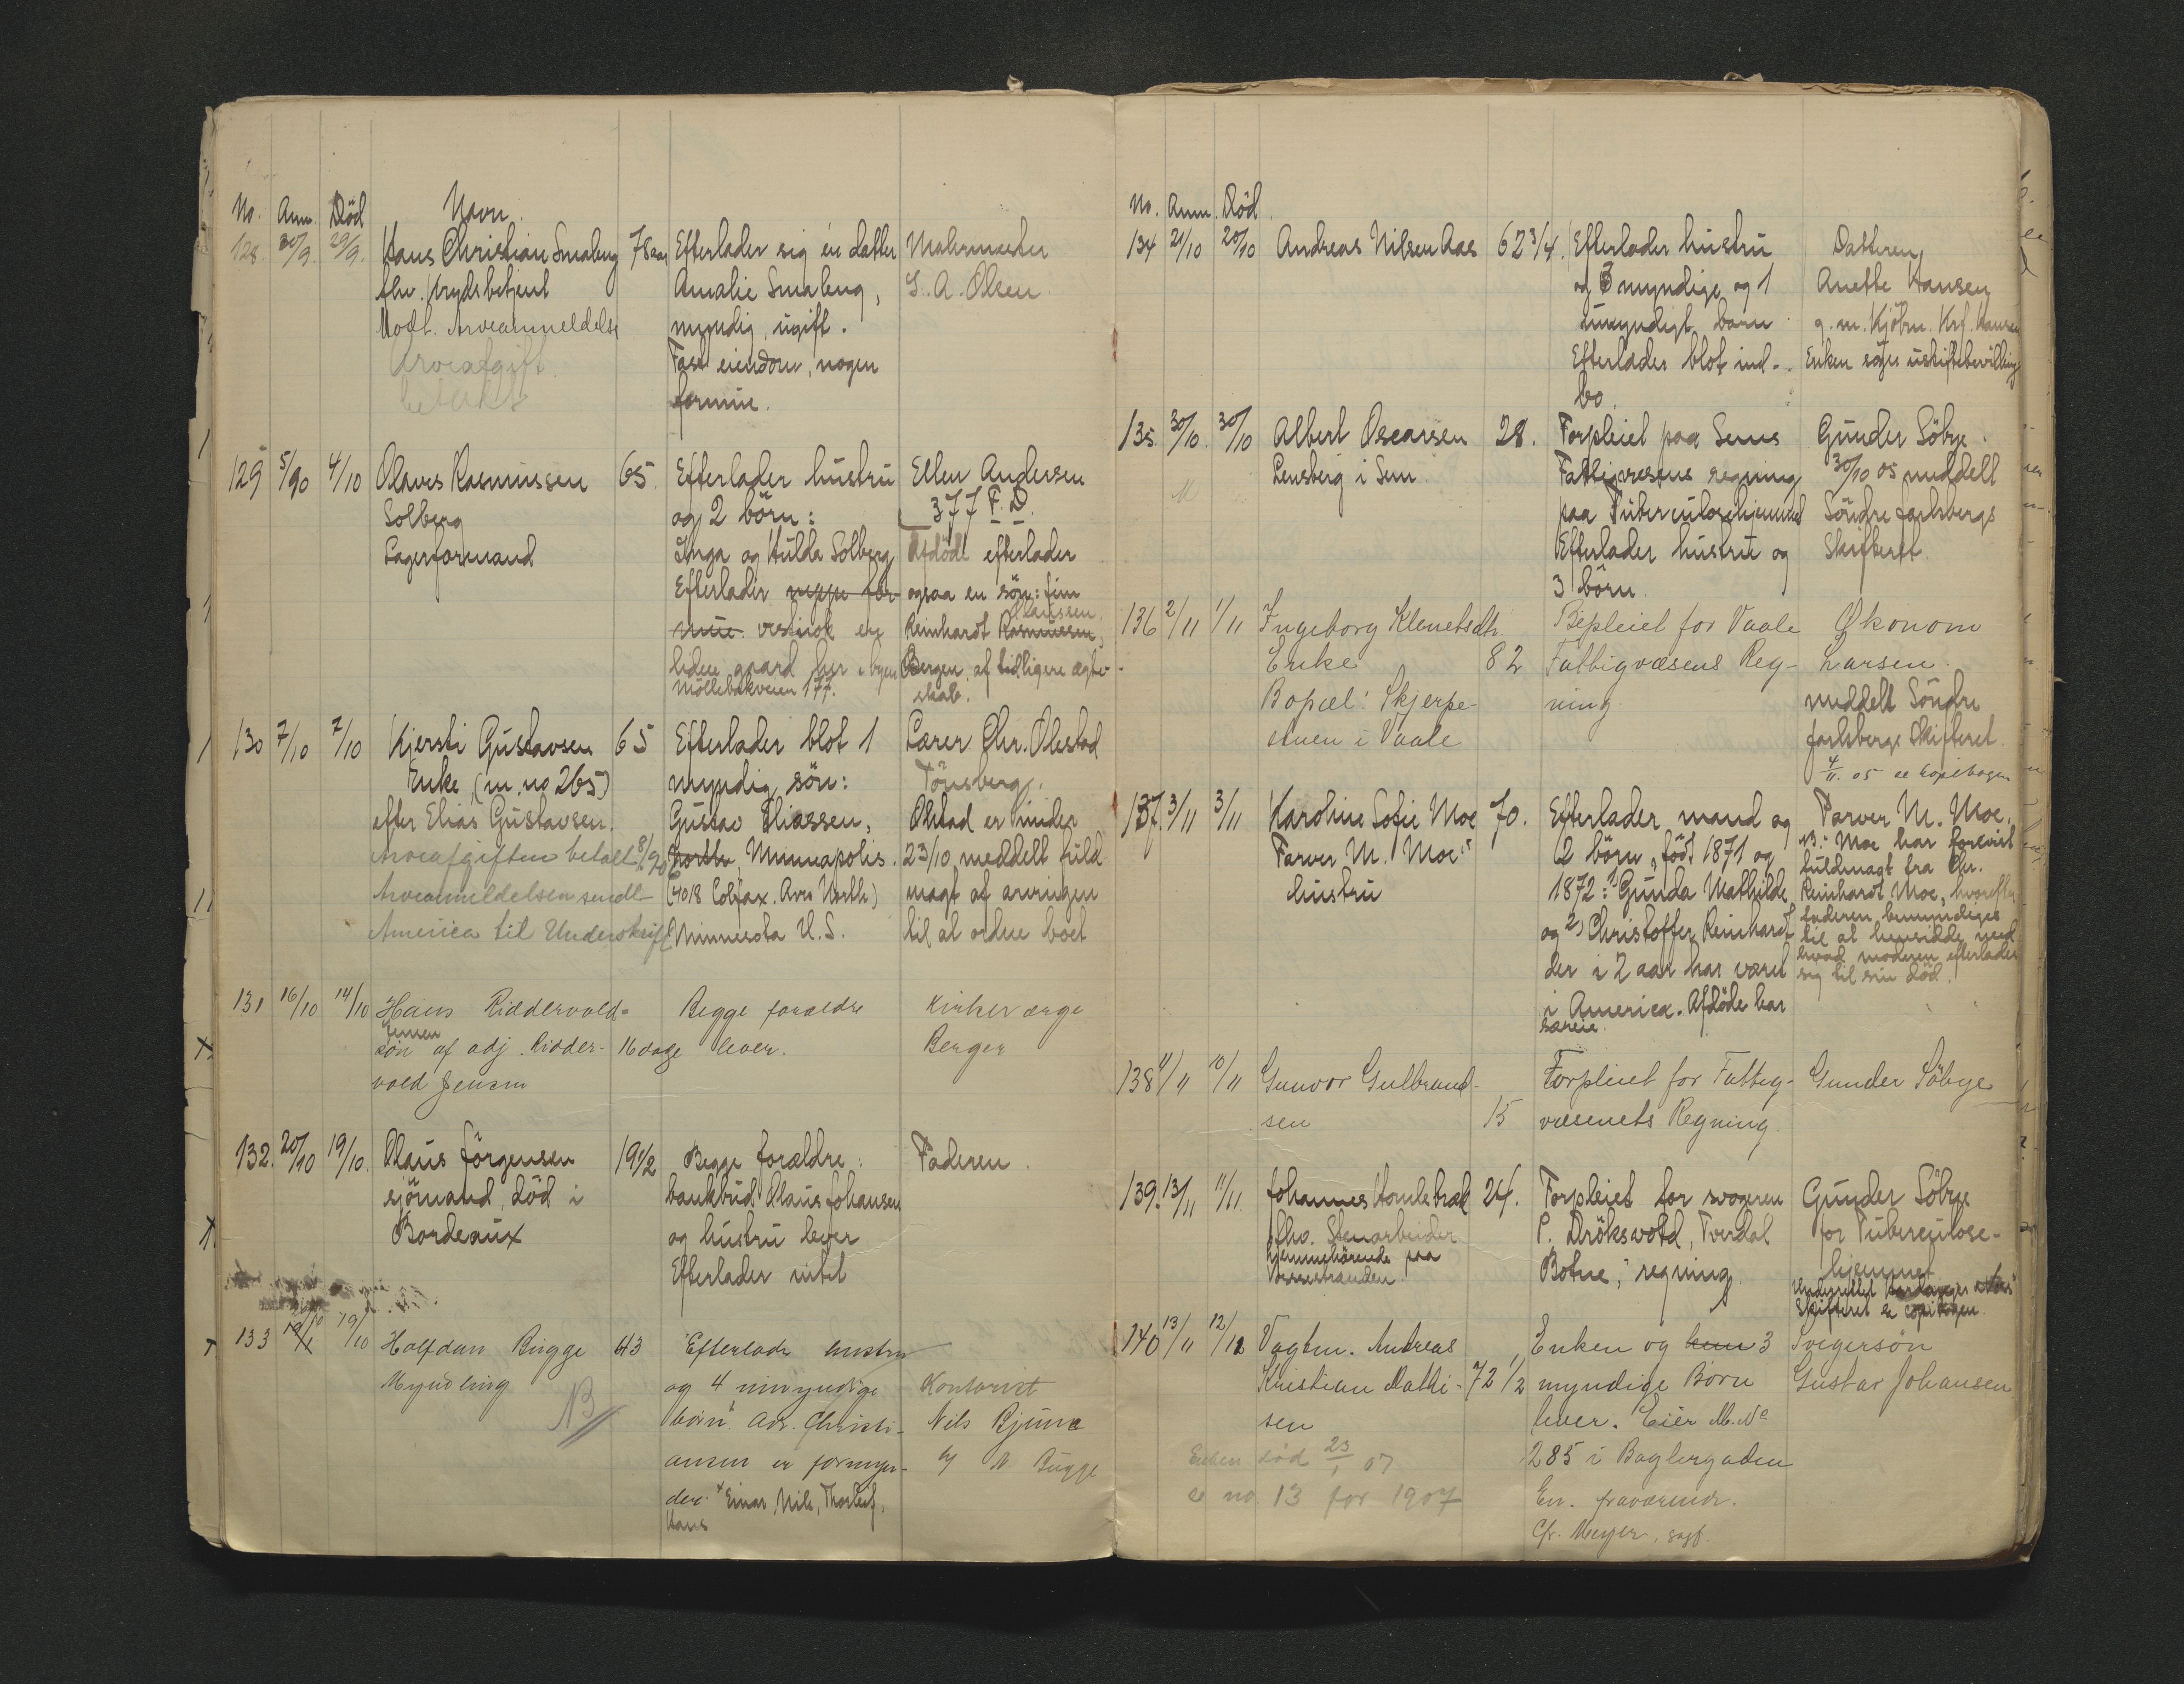 No. Anm. Död Navn.
128. 30/9. 29/9. Hans Christian Smaberg 78 aar Efterlader sig én datter Malermester
fhv. Amalie Smaberg, S. A. Olsen
Modt. Arveanmeldelse myndig, ugift.
Arveafgift Fast eiendom, nogen
betalt formue.
129 5/10 4/10 Olaves Rasmussen 65. Efterlader hustru Ellen Andersen
Solberg og 2 börn: 377 F. D.
Lagerformand Inga og Hulda Solberg Afdöde efterlader
Efterlader neppe for- ogsaa en sön: Finn
mue. Reinhardt Rasmussen, Claussen
gaard her i byen Bergen, af tidligere ægte-
Möllebakveien 177. skab.
130 7/10 7/10 Kjersti Gustavsen 65 Efterlader blot 1 Lærer Chr. Olestad
Enke, (m. no 265) myndig sön: Tönsberg.
efter Elias Gustavsen. Gustav Eliassen, Olestad er under
Arveafgiften betalt North, Minneapolis. 23/10 meddelt fuld-
Arveanmeldelsen sendt (4018 Colfax. Ave North) magt af arvingen
America til Underskrift Minnesota U. S. til at ordne boet
131 16/10 14/10 Hans Riddervold- Begge forældre Kirkeværge
Jensen
sön af adj. Ridder- 16 dage lever. Berger
vold Jensen
132. 20/10 19/10. Olaus Jörgensen 19 1/2 Begge forældre: Faderen.
sjömand, död i bankbud Olaus Johansen
Bordeaux og hustru lever
Efterlader intet
133 19/10 Halfdan Bugge 43 Efterlader hustru
Myndling og 4 umyndige Kontorist
NB börn x Adv. Christi- Nils Bjune
ansen er formyn- N. Bugge
der. x Einar, Nils, Thorleif,
Hans
No. Anm. Död.
134 21/10 20/10 Andreas Nilsen Aas 62 3/4. Efterlader hustru Datteren
og 3 myndige og 1 Anette Hansen
umyndigt barn g. m. Kjöbm. Krf. Hansen
Efterlader blot ind- Enken söger uskiftebevilling
bo.
135. 30/10. 30/10 Albert Oscarsen 28. Forpleiet paa Sems Gunder Söbye.
Lensberg i Sem. Fattigvæsens regning 30/10 05 meddelt
paa Tuberculosehjemmet Söndre Jarlsbergs
Efterlader hustru og Skifteret.
3 börn.
136 2/11 1/11 Ingeborg Klemetsdtr. Bepleiet for Vaale Økonom
Enke 82 Fattigvæsens Reg- Larsen.
Bopæl: Skjerpe- ning meddelt Söndre
stuen i Vaale Jarlsbergs Skifteret
4/11. 05 se kopibogen
137. 3/11 3/11 Karoline Sofie Moe 70. Efterlader mand og Farver M. Moe.
Farver M. Moe's 2 börn, födt 1871 og NB. Moe har forevist
hustru 1872: 1) Gunda Mathilde fuldmagt fra Chr.
og 2) Christoffer Reinhardt Reinhardt Moe, hvorefter
der i 2 aar har været faderen bemyndiges
i America. Afdöde har til at hensidde med
særeie. hvad moderen efterlader
sig til sin död.
138 11/11 10/11 Gunvor Gulbrand- Forpleiet for Fattig- Gunder Söbye
sen 15 væsenets Regning.
139. 13/11 11/11. Johannes Homlebræk 24. Forpleiet for svogeren Gunder Söbye
fhv. Stenarbeider P. Dröksvold, Tverdal for Tuberculose-
hjemmehörende paa Botne, regning. hjemmet
Skifteret se copibogen.
140 13/11 12/12 Vagtm. Andreas Enken og hem 3 Svigersön
Kristian Mathi- 72 1/2 myndige Börn Gustav Johansen
sen lever. Eier M. No
Enken död 23/1 07 285 i Baglergaden
se no 13 for 1907 En. fraværende.
Cfr. Meyer, sagf.